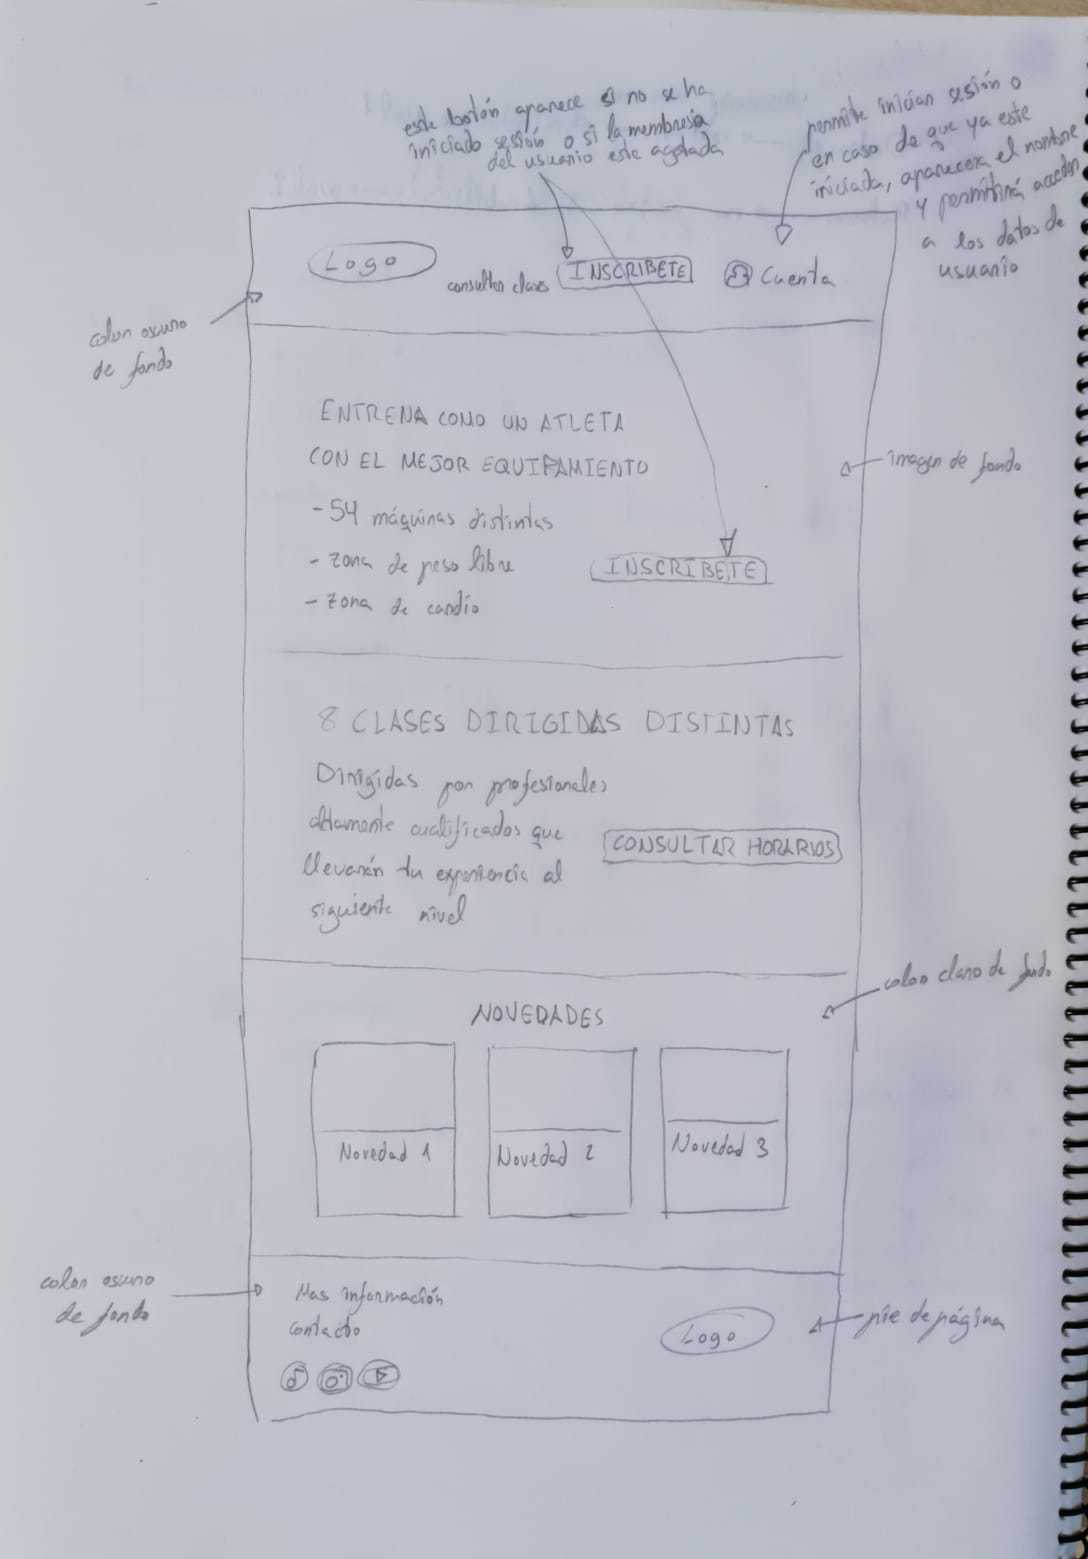 este botón aparece si no se ha
iniciado sesión o si la membresía
del usuario este agotada
permite iniciar sesión o
en caso de que ya este
iniciada, aparecera el nombre
y permitirá acceder
a los datos de
usuario
Logo
consultar clases
INSCRIBETE
Cuenta
color oscuro
de fondo
ENTRENA COMO UN ATLETA
CON EL MEJOR EQUIPAMIENTO
imagen de fondo
- 54 máquinas distintas
- zona de peso libre
- zona de cardio
INSCRIBETE
8 CLASES DIRIGIDAS DISTINTAS
Dirigidas por profesionales
altamente cualificados que
llevarán tu experiencia al
siguiente nivel
CONSULTAR HORARIOS
color claro de fondo
NOVEDADES
Novedad 1
Novedad 2
Novedad 3
color oscuro
de fondo
Mas información
contacto
Logo
pie de página